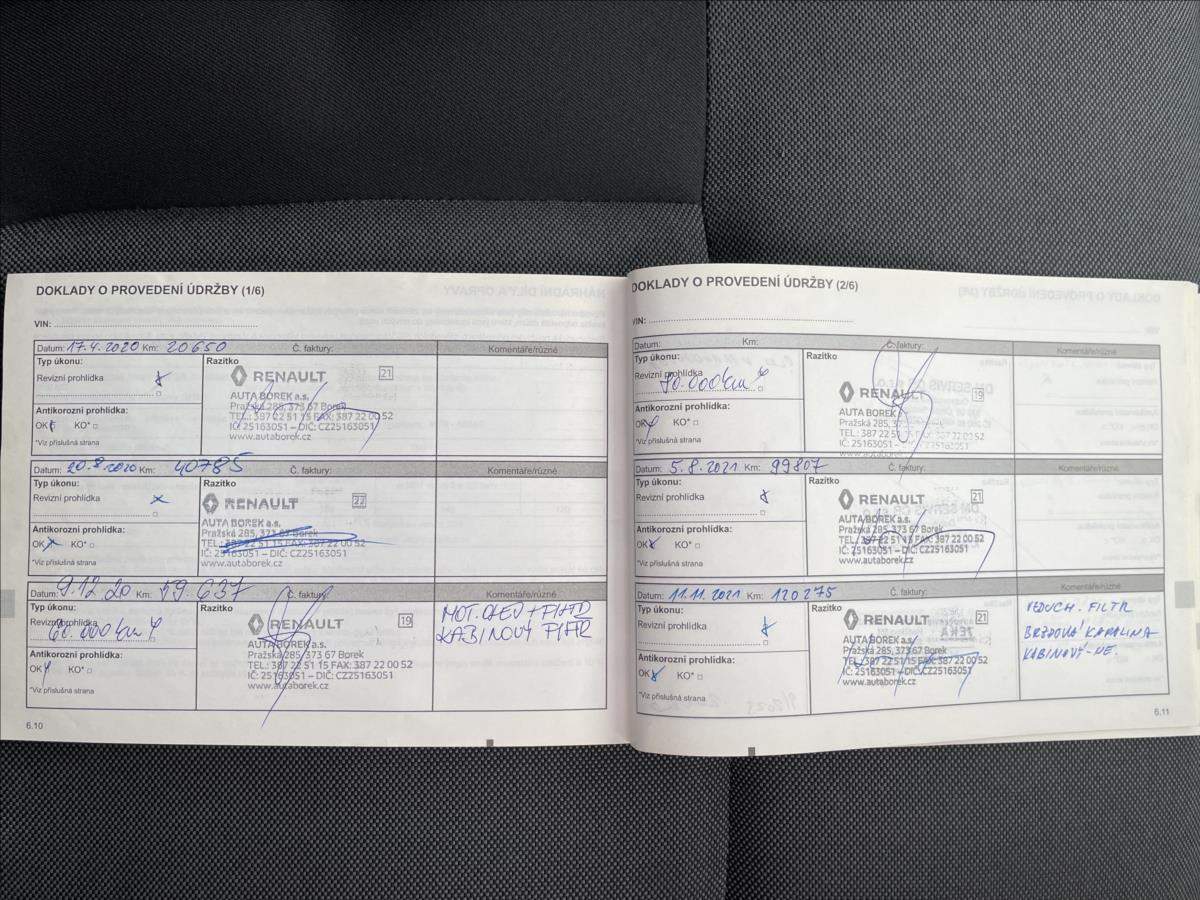 DOKLADY O PROVEDENÍ ÚDRŽBY (1/6)
VIN:
Datum: 17.4.2020 Km: 20650 Č. faktury: Komentáře/různé
Typ úkonu:
Revizní prohlídka
Antikorozní prohlídka:
OK KO*
*Viz příslušná strana
Razítko
RENAULT 21
AUTA BOREK a.s.
Pražská 285, 373 67 Borek
TEL.: 387 22 51 15 FAX: 387 22 00 52
IČ: 25163051 – DIČ: CZ25163051
www.autaborek.cz
Datum: 20.8.2020 Km: 40785 Č. faktury: Komentáře/různé
Typ úkonu:
Revizní prohlídka
Antikorozní prohlídka:
OK KO*
*Viz příslušná strana
Razítko
RENAULT 22
AUTA BOREK a.s.
Pražská 285, 373 67 Borek
TEL.: 387 22 51 15 FAX: 387 22 00 52
IČ: 25163051 – DIČ: CZ25163051
www.autaborek.cz
Datum: 9.12.20 Km: 59.637 Č. faktury: Komentáře/různé
Typ úkonu:
Revizní prohlídka
60.000km
Antikorozní prohlídka:
OK KO*
*Viz příslušná strana
Razítko
RENAULT 19
AUTA BOREK a.s.
Pražská 285, 373 67 Borek
TEL.: 387 22 51 15 FAX: 387 22 00 52
IČ: 25163051 – DIČ: CZ25163051
www.autaborek.cz
MOT. OLEJ +
KABINOVÝ
6.10
DOKLADY O PROVEDENÍ ÚDRŽBY (2/6)
VIN:
Datum: Km: Č. faktury: Komentáře/různé
Typ úkonu:
Revizní prohlídka
Antikorozní prohlídka:
OK KO*
*Viz příslušná strana
Razítko
RENAULT 19
AUTA BOREK
Pražská 285,
TEL.: 387 22 51 15 FAX: 387 22 00 52
IČ: 25163051 – DIČ: CZ25163051
www.autaborek.cz
Datum: 5.8.2021 Km: 99807 Č. faktury: Komentáře/různé
Typ úkonu:
Revizní prohlídka
Antikorozní prohlídka:
OK KO*
*Viz příslušná strana
Razítko
RENAULT 21
AUTA BOREK a.s.
Pražská 285, 373 67 Borek
TEL.: 387 22 51 15 FAX: 387 22 00 52
IČ: 25163051 – DIČ: CZ25163051
www.autaborek.cz
Datum: 11.11.2021 Km: 120275 Č. faktury: Komentáře/různé
Typ úkonu:
Revizní prohlídka
Antikorozní prohlídka:
OK KO*
*Viz příslušná strana
Razítko
RENAULT 21
AUTA BOREK a.s.
Pražská 285, 373 67 Borek
TEL.: 387 22 51 15 FAX: 387 22 00 52
IČ: 25163051 – DIČ: CZ25163051
www.autaborek.cz
VZDUCH. FILTR
BRZDOVÁ KAPALINA
KABINOVÝ-NE.
6.11